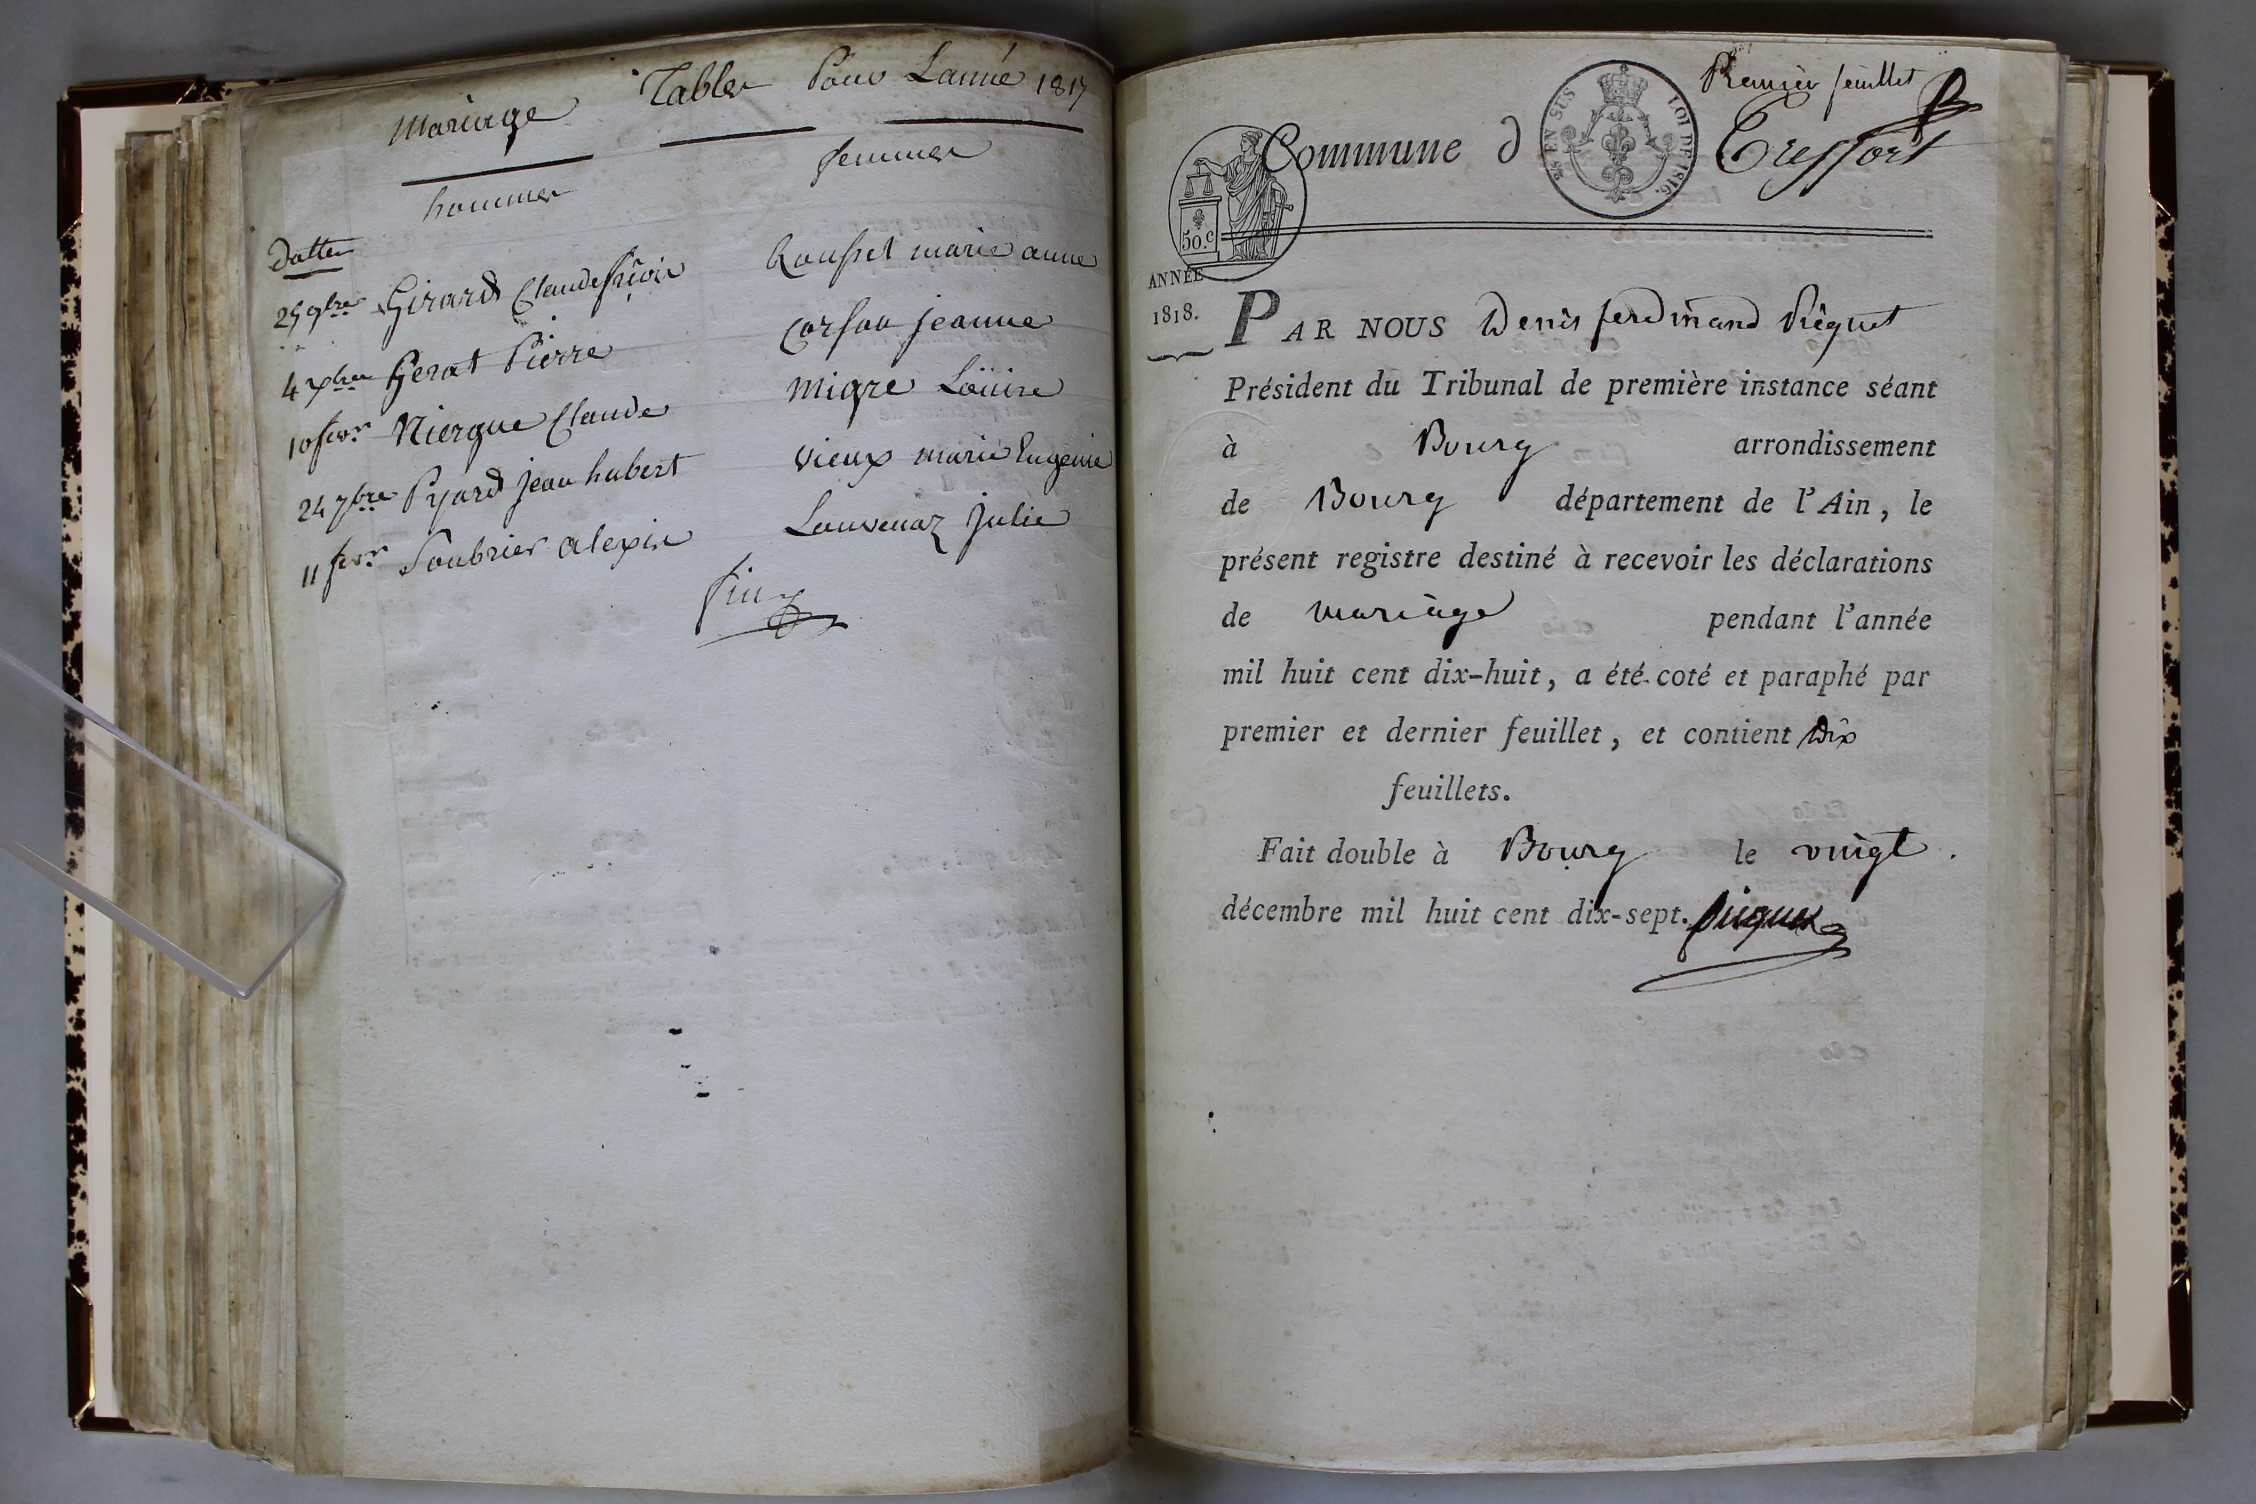 Mariage Tables Pour L'année 1817
hommes femmes
Dattes
25 9bre Girard Claude frçois Rousset marie anne
4 xbre Gerat Pierre Corsan jeanne
10 fevr Niergue Claude Migre Loüise
24 7bre Pyard jean hubert Vieux marie Eugenie
11 fevr Soubrier alexis Louvenaz Julie
fin
Premier feuillet
Commune d Treffort
25 EN SUS LOI DE 1816.
50.c
ANNÉE
1818.
PAR NOUS Denis ferdinand Piequet
Président du Tribunal de première instance séant
à Bourg arrondissement
de Bourg département de l'Ain, le
présent registre destiné à recevoir les déclarations
de mariage pendant l'année
mil huit cent dix-huit, a été coté et paraphé par
premier et dernier feuillet, et contient Dix
feuillets.
Fait double à Bourg le vingt
décembre mil huit cent dix-sept. Piequet